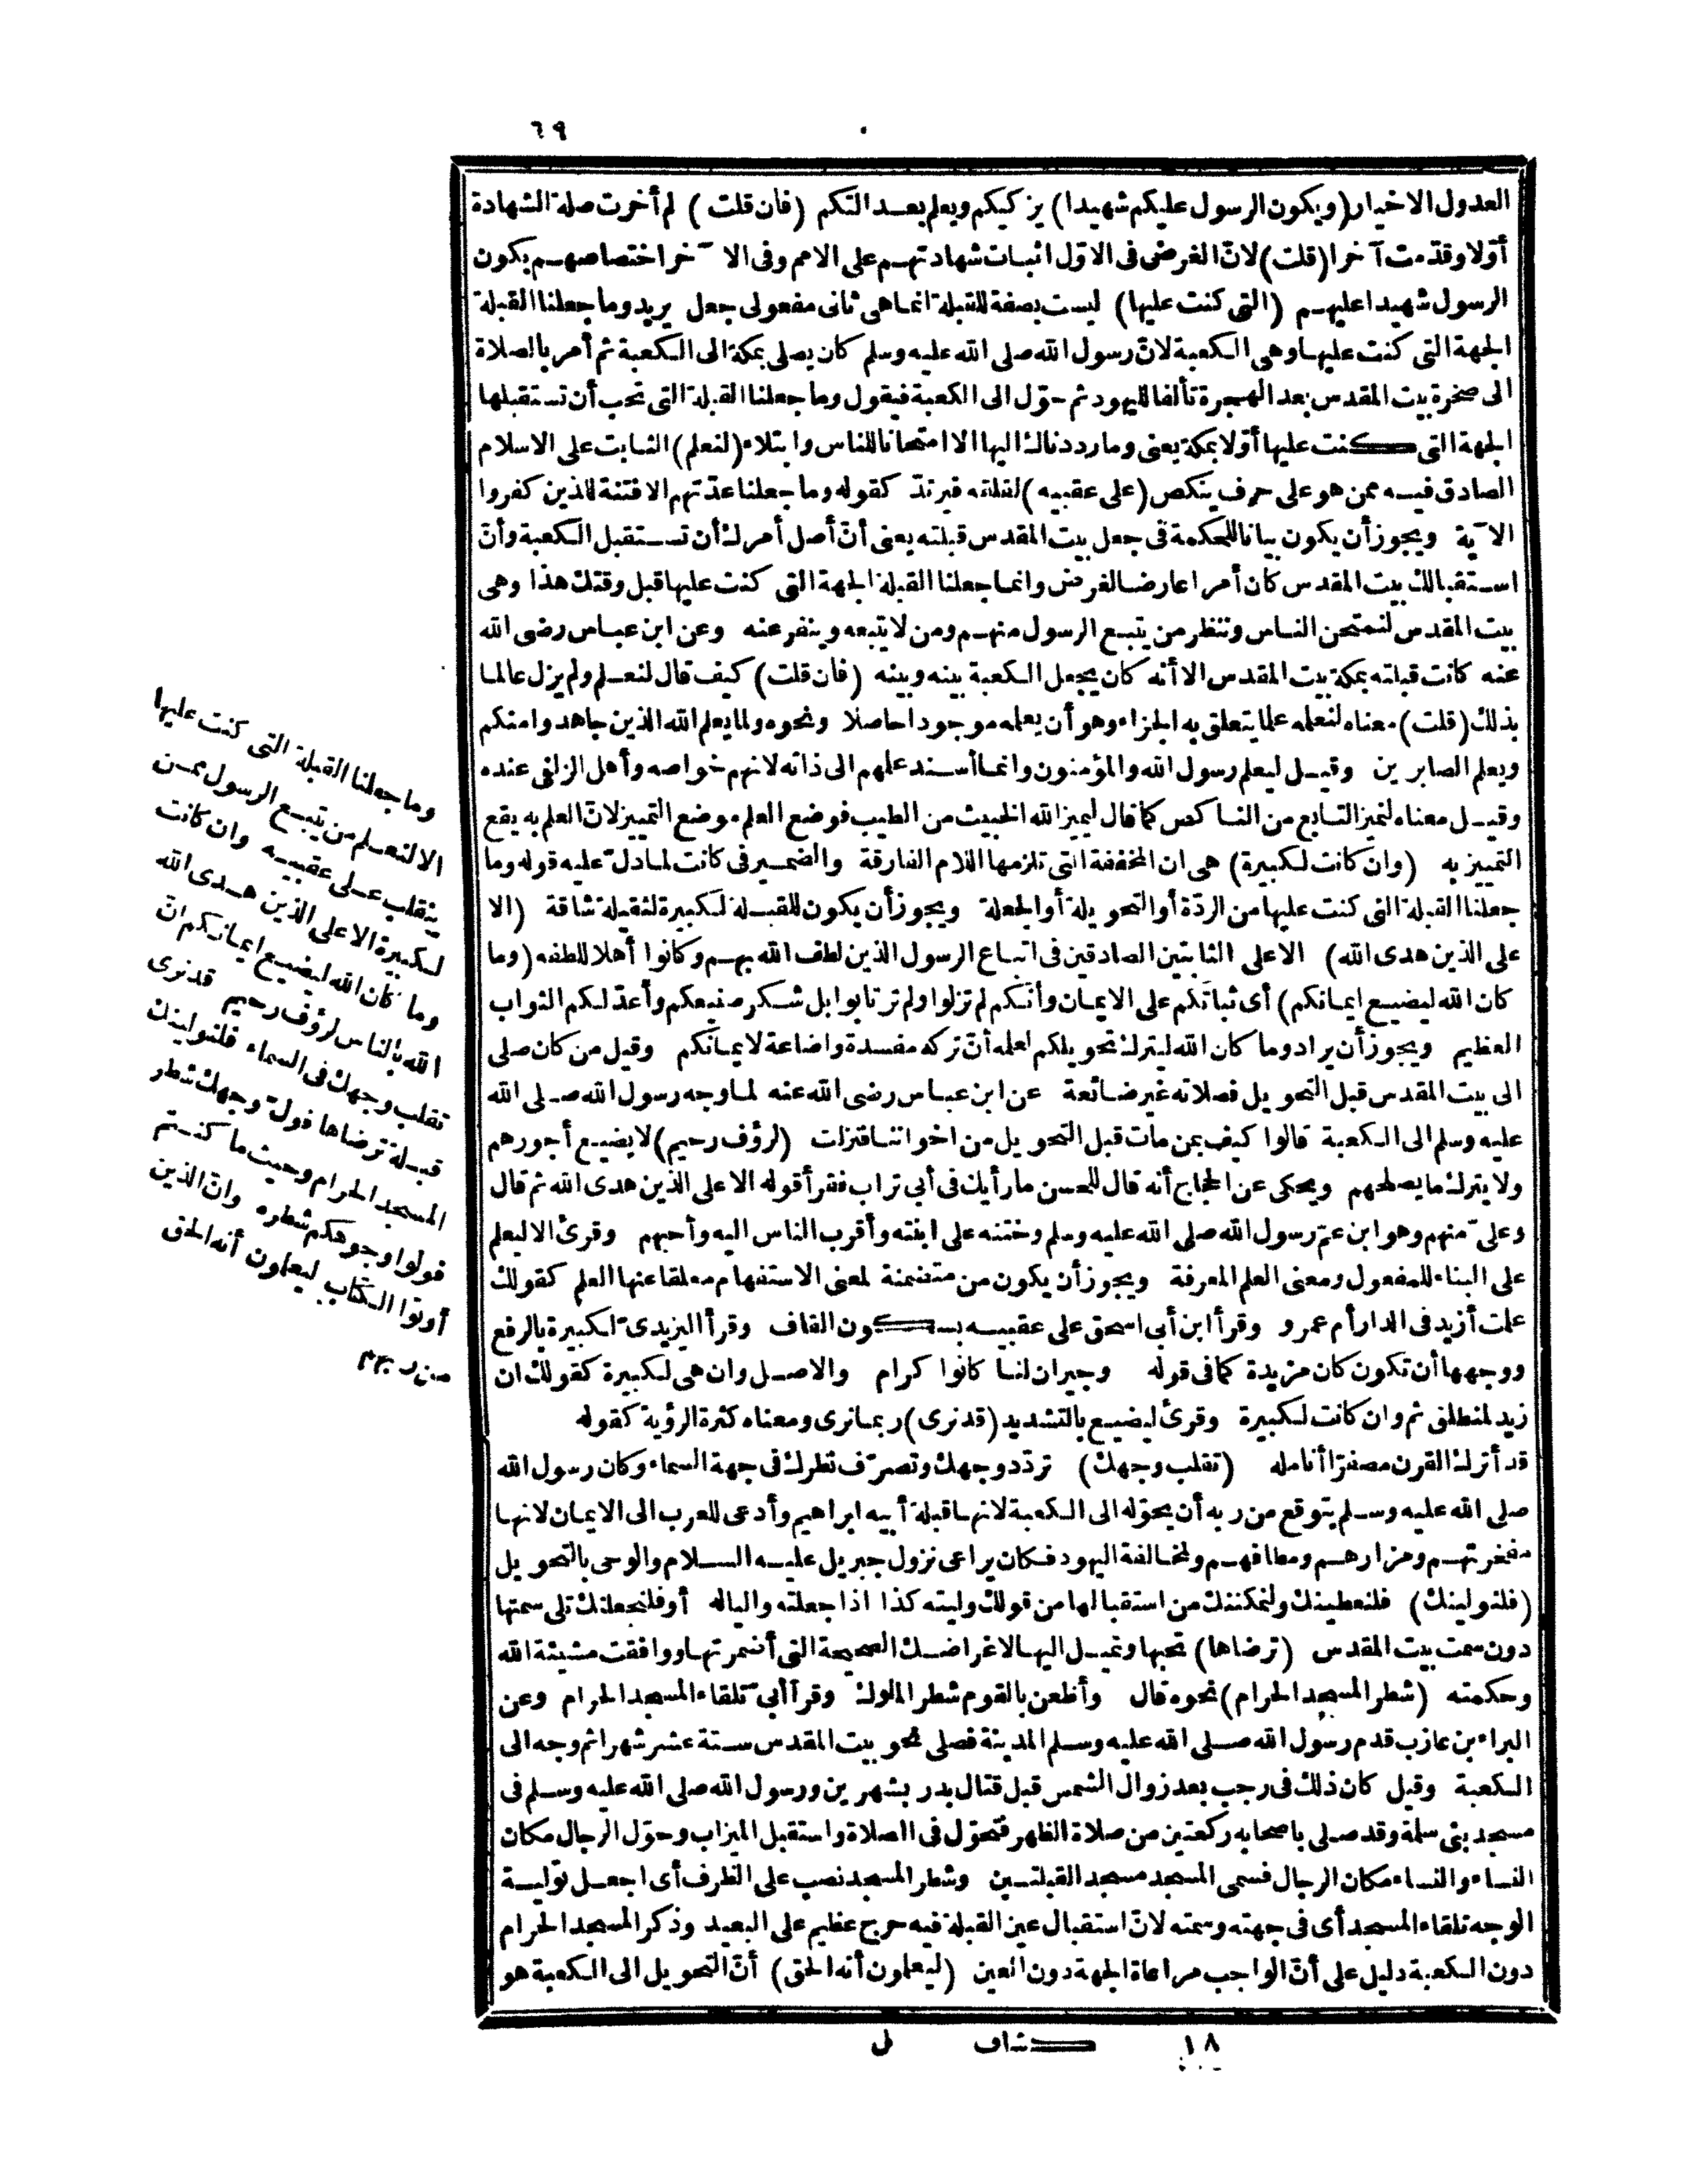 ٦٩
العدول الاخيار (ويكون الرسول عليكم شهيدا) يزكيكم ويعلم بعدالتكم (فان قلت) لم أخرت صلة الشهادة
أوّلا وقدّمت آخرا (قلت) لانّ الغرض فى الاوّل اثبات شهادتهم على الامم وفى الآخر اختصاصهم بكون
الرسول شهيدا عليهم (التى كنت عليها) ليست بصفة للقبلة انما هى ثانى مفعولى جعل يريد وما جعلنا القبلة
الجهة التى كنت عليها وهى الكعبة لانّ رسول الله صلى الله عليه وسلم كان يصلى بمكة الى الكعبة ثم أمر بالصلاة
الى صخرة بيت المقدس بعد الهجرة تألفا لليهود ثم حوّل الى الكعبة فيقول وما جعلنا القبلة التى تحب أن تستقبلها
الجهة التى كنت عليها أوّلا بمكة يعنى وما رددناك اليها الا امتحانا للناس وابتلاء (لنعلم) الثابت على الاسلام
الصادق فيه ممن هو على حرف ينكص (على عقبيه) لقلقه فيرتدّ كقوله وما جعلنا عدّتهم الا فتنة للذين كفروا
الآية ويجوز أن يكون بيانا للحكمة فى جعل بيت المقدس قبلته يعنى أنّ أصل أمرك أن تستقبل الكعبة وأنّ
استقبالك بيت المقدس كان أمرا عارضا لغرض وانما جعلنا القبلة الجهة التى كنت عليها قبل وقتك هذا وهى
بيت المقدس لنمتحن الناس وننظر من يتبع الرسول منهم ومن لا يتبعه وينفر عنه وعن ابن عباس رضى الله
عنه كانت قبلته بمكة بيت المقدس الا أنه كان يجعل الكعبة بينه وبينه (فان قلت) كيف قال لنعلم ولم يزل عالما
بذلك (قلت) معناه لنعلمه علما يتعلق به الجزاء وهو أن يعلمه موجودا حاصلا ونحوه ولما يعلم الله الذين جاهدوا منكم
ويعلم الصابرين وقيل ليعلم رسول الله والمؤمنون وانما أسند علمهم الى ذاته لانهم خواصه وأهل الزلفى عنده
وقيل معناه لنميز التابع من الناكص كما قال ليميز الله الخبيث من الطيب فوضع العلم موضع التمييز لانّ العلم به يقع
التمييز به (وان كانت لكبيرة) هى ان المخففة التى تلزمها اللام الفارقة والضمير فى كانت لما دلّ عليه قوله وما
جعلنا القبلة التى كنت عليها من الردّة أو التحويلة أو الجعلة ويجوز أن يكون للقبلة لكبيرة لثقيلة شاقة (الا
على الذين هدى الله) الا على الثابتين الصادقين فى اتباع الرسول الذين لطف الله بهم وكانوا أهلا للطفه (وما
كان الله ليضيع ايمانكم) أى ثباتكم على الايمان وأنكم لم تزلوا ولم ترتابوا بل شكر صنيعكم وأعدّ لكم الثواب
العظيم ويجوز أن يراد وما كان الله ليترك تحويلكم لعلمه أنّ تركه مفسدة واضاعة لايمانكم وقيل من كان صلى
الى بيت المقدس قبل التحويل فصلاته غير ضائعة عن ابن عباس رضى الله عنه لما وجه رسول الله صلى الله
عليه وسلم الى الكعبة قالوا كيف بمن مات قبل التحويل من اخواننا فنزلت (لرؤف رحيم) لا يضيع أجورهم
ولا يترك ما يصلحهم ويحكى عن الحجاج أنه قال للحسن ما رأيك فى أبى تراب فقرأ قوله الا على الذين هدى الله ثم قال
وعلىّ منهم وهو ابن عمّ رسول الله صلى الله عليه وسلم وختنه على ابنته وأقرب الناس اليه وأحبهم وقرئ الا ليعلم
على البناء للمفعول ومعنى العلم المعرفة ويجوز أن يكون من متضمنة لمعنى الاستفهام معلقا عنها العلم كقولك
علمت أزيد فى الدار أم عمرو وقرأ ابن أبى اسحق على عقبيه بسكون القاف وقرأ اليزيدىّ لكبيرة بالرفع
ووجهها أن تكون كان مزيدة كما فى قوله وجيران لنا كانوا كرام والاصل وان هى لكبيرة كقولك ان
زيد لمنطلق ثم وان كانت لكبيرة وقرئ ليضيع بالتشديد (قد نرى) ربما نرى ومعناه كثرة الرؤية كقوله
قد أترك القرن مصفرّا أنامله (تقلب وجهك) تردّد وجهك وتصرّف نظرك فى جهة السماء وكان رسول الله
صلى الله عليه وسلم يتوقع من ربه أن يحوّله الى الكعبة لانها قبلة أبيه ابراهيم وأدعى للعرب الى الايمان لانها
مفخرتهم ومزارهم ومطافهم ولمخالفة اليهود فكان يراعى نزول جبريل عليه السلام والوحى بالتحويل
(فلنولينك) فلنعطينك ولنمكننك من استقبالها من قولك وليته كذا اذا جعلته واليا له أو فلنجعلنك تلى سمتها
دون سمت بيت المقدس (ترضاها) تحبها وتميل اليها لاغراضك الصحيحة التى أضمرتها ووافقت مشيئة الله
وحكمته (شطر المسجد الحرام) نحوه قال وأظعن بالقوم شطر الملوك وقرأ أبىّ تلقاء المسجد الحرام وعن
البراء بن عازب قدم رسول الله صلى الله عليه وسلم المدينة فصلى نحو بيت المقدس ستة عشر شهرا ثم وجه الى
الكعبة وقيل كان ذلك فى رجب بعد زوال الشمس قبل قتال بدر بشهرين ورسول الله صلى الله عليه وسلم فى
مسجد بنى سلمة وقد صلى باصحابه ركعتين من صلاة الظهر فتحوّل فى الصلاة واستقبل الميزاب وحوّل الرجال مكان
النساء والنساء مكان الرجال فسمى المسجد مسجد القبلتين وشطر المسجد نصب على الظرف أى اجعل تولية
الوجه تلقاء المسجد أى فى جهته وسمته لانّ استقبال عين القبلة فيه حرج عظيم على البعيد وذكر المسجد الحرام
دون الكعبة دليل على أنّ الواجب مراعاة الجهة دون العين (ليعلمون أنه الحق) أنّ التحويل الى الكعبة هو
وما جعلنا القبلة التى كنت عليها
الا لنعلم من يتبع الرسول ممن
ينقلب على عقبيه وان كانت
لكبيرة الا على الذين هدى الله
وما كان الله ليضيع ايمانكم انّ
الله بالناس لرؤف رحيم قد نرى
تقلب وجهك فى السماء فلنولينك
قبلة ترضاها فولّ وجهك شطر
المسجد الحرام وحيث ما كنتم
فولوا وجوهكم شطره وانّ الذين
أوتوا الكتاب ليعلمون أنه الحق
من ربهم
١٨ كشاف ل